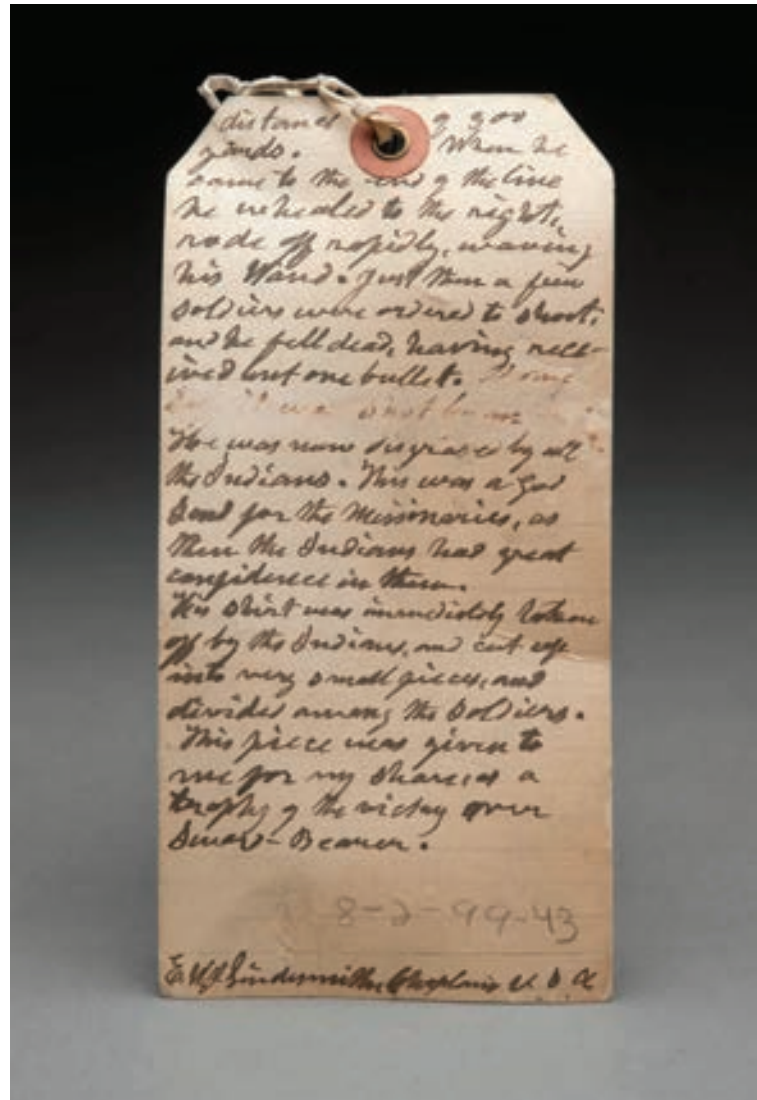 distance of 900
yards. When he
came to the end of the line
he wheeled to the right,
rode off rapidly, waving
his Wand. Just then a few
soldiers were ordered to shoot,
and he fell dead, having rece-
ived but one bullet.
shot
He was now disgraced by all
the Indians. This was a God
Send for the Missionaries, as
then the Indians had great
confidence in them.
His shirt was immediately taken
off by the Indians, and cut up
into very small pieces, and
divided among the Soldiers.
This piece was given to
me for my share, as a
trophy of the victory over
Sword-Bearer.
8-2-99-43
E. W. J. Lindesmith, Chaplain U. S. A